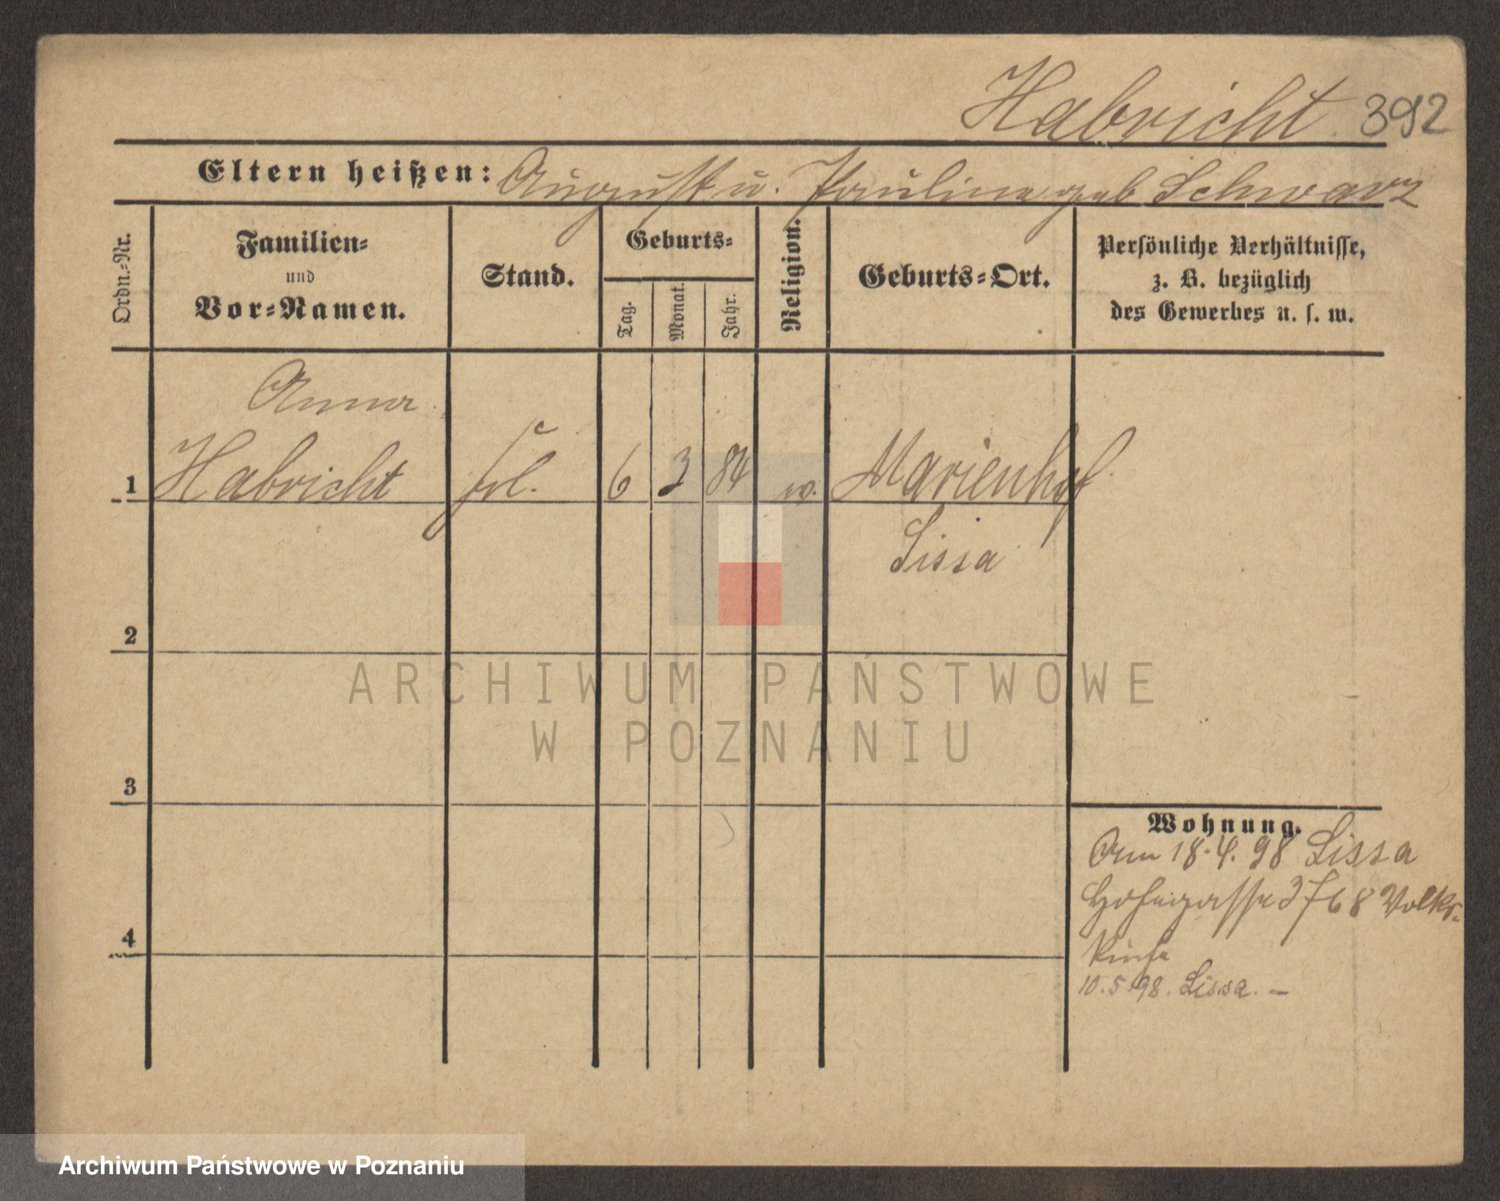 Habricht 392
Eltern heißen: August u. Paulina geb Schwarz
Ordn.-Nr.
Familien-
und
Vor-Namen.
Stand.
Geburts-
Tag.
Monat.
Jahr.
Religion.
Geburts-Ort.
Persönliche Verhältnisse,
z. B. bezüglich
des Gewerbes u. s. w.
Anna
1 Habricht frl. 6 3 84 Marienhof
Lissa
2
3
4
Wohnung.
Am 18.4.98 Lissa
768 Volks-
10.5.98. Lissa. —
ARCHIWUM PAŃSTWOWE
W POZNANIU
Archiwum Państwowe w Poznaniu